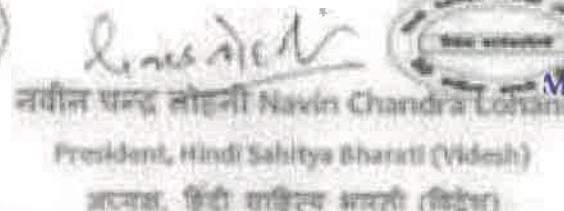 नवीन चन्द्र लोहनी Navin Chandra Lohan
President, Hindi Sahitya Bharati (Videsh)
अध्यक्ष, हिंदी साहित्य भारती (विदेश)